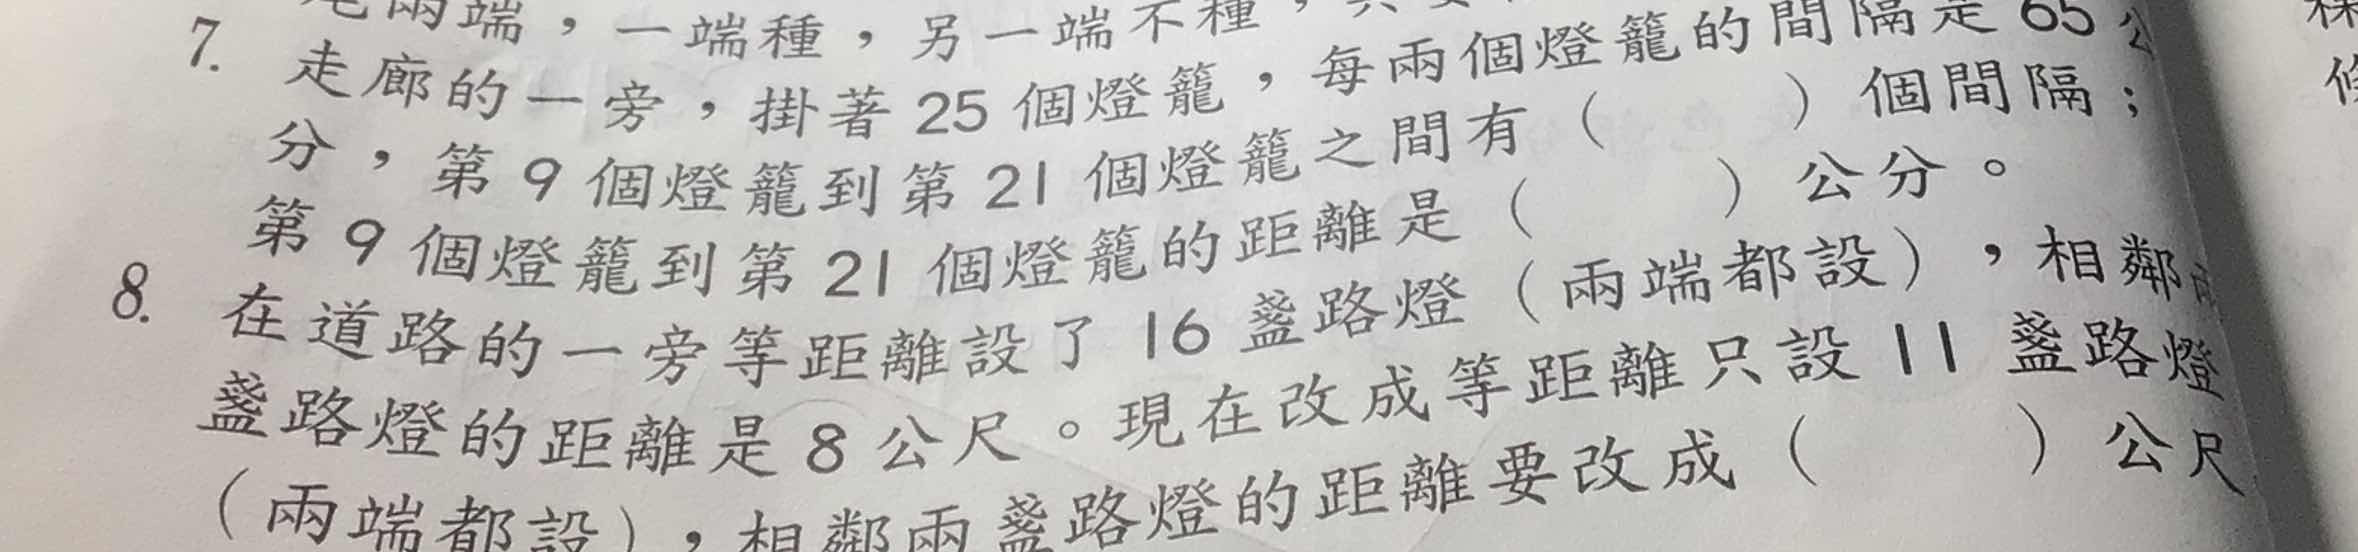 尾兩端，一端種，另一端不種，
7. 走廊的一旁，掛著 25 個燈籠，每兩個燈籠的間隔是 65 公
分，第 9 個燈籠到第 21 個燈籠之間有（　　）個間隔；
第 9 個燈籠到第 21 個燈籠的距離是（　　）公分。
8. 在道路的一旁等距離設了 16 盞路燈（兩端都設），相鄰兩
盞路燈的距離是 8 公尺。現在改成等距離只設 11 盞路燈
（兩端都設），相鄰兩盞路燈的距離要改成（　　）公尺